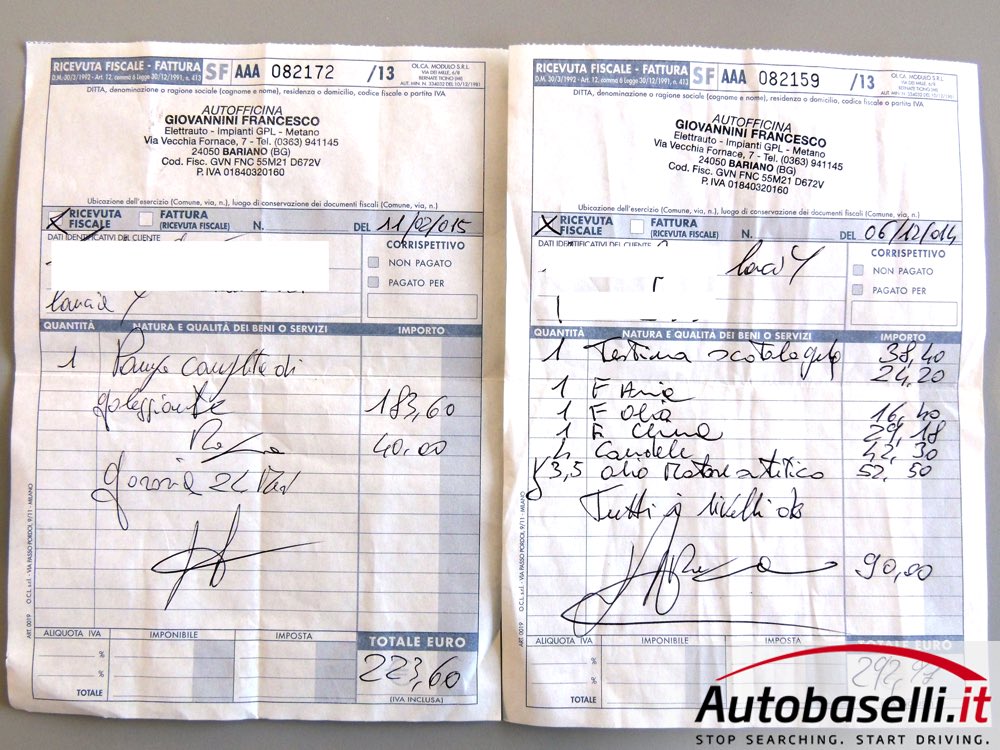 RICEVUTA FISCALE - FATTURA SF AAA 082172 /13
D.M. 30/3/1992 - Art. 12, comma 6 Legge 30/12/1991, n. 413
OL.CA. MODULO S.R.L.
VIA DEI MILLE, 6/8
BERNATE TICINO (MI)
AUT. MIN. N. 334032 DEL 10/12/1981
DITTA, denominazione o ragione sociale (cognome e nome), residenza o domicilio, codice fiscale o partita IVA
AUTOFFICINA
GIOVANNINI FRANCESCO
Elettrauto - Impianti GPL - Metano
Via Vecchia Fornace, 7 - Tel. (0363) 941145
24050 BARIANO (BG)
Cod. Fisc. GVN FNC 55M21 D672V
P. IVA 01840320160
Ubicazione dell'esercizio (Comune, via, n.), luogo di conservazione dei documenti fiscali (Comune, via, n.)
X RICEVUTA FISCALE FATTURA (RICEVUTA FISCALE) N. DEL 11/02/015
DATI IDENTIFICATIVI DEL CLIENTE
CORRISPETTIVO
NON PAGATO
PAGATO PER
Lancia Y
QUANTITÀ NATURA E QUALITÀ DEI BENI O SERVIZI IMPORTO
1 completa di
galeggiante 183,60
40,00
24
ALIQUOTA IVA IMPONIBILE IMPOSTA TOTALE EURO
%
%
223,60
TOTALE (IVA INCLUSA)
ART. 0019 O.C.L. s.r.l. - VIA PASSO PORDOI, 9/11 - MILANO
RICEVUTA FISCALE - FATTURA SF AAA 082159 /13
D.M. 30/3/1992 - Art. 12, comma 6 Legge 30/12/1991, n. 413
OL.CA. MODULO S.R.L.
VIA DEI MILLE, 6/8
BERNATE TICINO (MI)
AUT. MIN. N. 334032 DEL 10/12/1981
DITTA, denominazione o ragione sociale (cognome e nome), residenza o domicilio, codice fiscale o partita IVA
AUTOFFICINA
GIOVANNINI FRANCESCO
Elettrauto - Impianti GPL - Metano
Via Vecchia Fornace, 7 - Tel. (0363) 941145
24050 BARIANO (BG)
Cod. Fisc. GVN FNC 55M21 D672V
P. IVA 01840320160
Ubicazione dell'esercizio (Comune, via, n.), luogo di conservazione dei documenti fiscali (Comune, via, n.)
X RICEVUTA FISCALE FATTURA (RICEVUTA FISCALE) N. DEL 06/12/014
DATI IDENTIFICATIVI DEL CLIENTE
CORRISPETTIVO
Y
NON PAGATO
PAGATO PER
QUANTITÀ NATURA E QUALITÀ DEI BENI O SERVIZI IMPORTO
1 Testina 38,40
24,20
1 F Aria
1 F olio 16,40
1 F Clima 29,18
4 Candele 42,30
3,5 olio Motore 52,50
Tutti i livelli
90,00
ALIQUOTA IVA IMPONIBILE IMPOSTA TOTALE EURO
%
%
292,97
TOTALE
ART. 0019 O.C.L. s.r.l. - VIA PASSO PORDOI, 9/11 - MILANO
Autobaselli.it
STOP SEARCHING. START DRIVING.